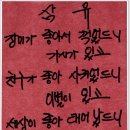 삭유
장미가 좋아서 꺾었드니
가시가 있고
친구가 좋아 사귀었드니
이별이 있고
세상이 좋아 태어났드니